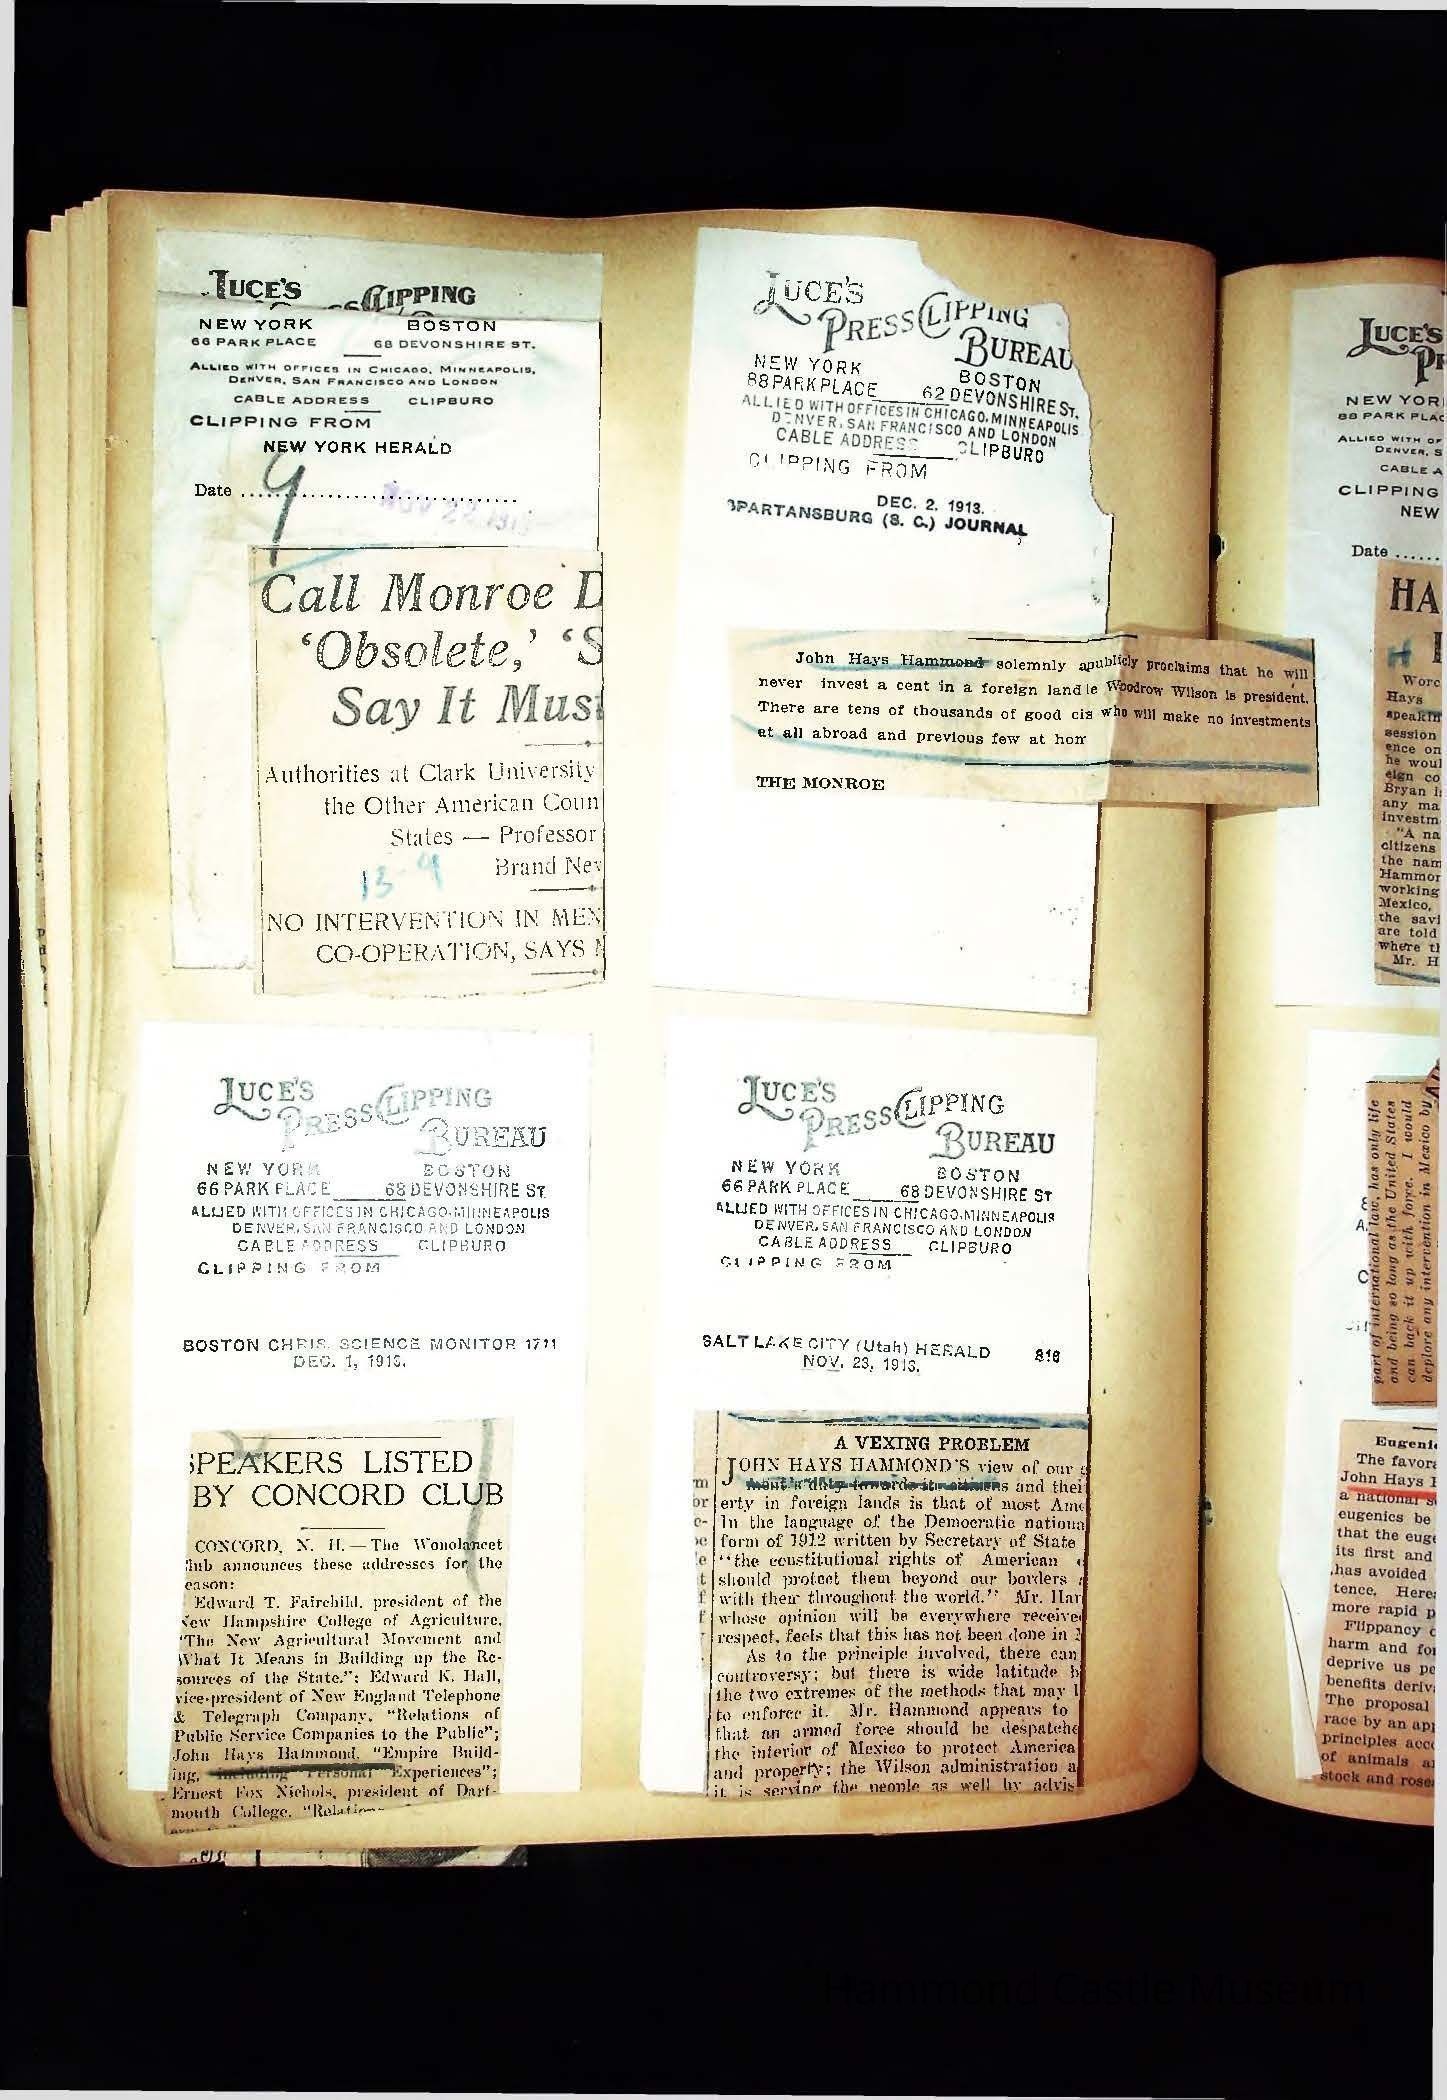 LUCE'S
CLIPPING
NEW YORK BOSTON
66 PARK PLACE 68 DEVONSHIRE ST.
ALLIED WITH OFFICES IN CHICAGO, MINNEAPOLIS,
DENVER, SAN FRANCISCO AND LONDON
CABLE ADDRESS CLIPBURO
CLIPPING FROM
NEW YORK HERALD
9
Date
NOV 22 191
Call Monroe D
'Obsolete,' 'S
Say It Mus
Authorities at Clark University
the Other American Coun
States — Professor
Brand Nev
13-9
NO INTERVENTION IN MEX
CO-OPERATION, SAYS
LUCE'S
PRESS CLIPPING
BUREAU
NEW YORK BOSTON
88 PARK PLACE 62 DEVONSHIRE ST.
ALLIED WITH OFFICES IN CHICAGO, MINNEAPOLIS
DENVER, SAN FRANCISCO AND LONDON
CABLE ADDRESS CLIPBURO
CLIPPING FROM
DEC. 2, 1913.
SPARTANSBURG (S. C.) JOURNAL
John Hays Hammond solemnly apublicly proclaims that he will
never invest a cent in a foreign land le Woodrow Wilson is president.
There are tens of thousands of good cis who will make no investments
at all abroad and previous few at hom
THE MONROE
LUCE'S
PRESS CLIPPING
BUREAU
NEW YORK BOSTON
66 PARK PLACE 68 DEVONSHIRE ST.
ALLIED WITH OFFICES IN CHICAGO, MINNEAPOLIS
DENVER, SAN FRANCISCO AND LONDON
CABLE ADDRESS CLIPBURO
CLIPPING FROM
BOSTON CHRIS. SCIENCE MONITOR 1711
DEC. 1, 1913.
SPEAKERS LISTED
BY CONCORD CLUB
CONCORD, N. H. — The Wonolancet
Club announces these addresses for the
eason:
Edward T. Fairchild, president of the
New Hampshire College of Agriculture,
"The New Agricultural Movement and
What It Means in Building up the Re-
sources of the State."; Edward K. Hall,
vice-president of New England Telephone
& Telegraph Company, "Relations of
Public Service Companies to the Public";
John Hays Hammond, "Empire Build-
ing, including Personal Experiences";
Ernest Fox Nichols, president of Dart-
mouth College, "Relation
LUCE'S
PRESS CLIPPING
BUREAU
NEW YORK BOSTON
66 PARK PLACE 68 DEVONSHIRE ST
ALLIED WITH OFFICES IN CHICAGO, MINNEAPOLIS
DENVER, SAN FRANCISCO AND LONDON
CABLE ADDRESS CLIPBURO
CLIPPING FROM
SALT LAKE CITY (Utah) HERALD 816
NOV. 23, 1913.
A VEXING PROBLEM
JOHN HAYS HAMMOND'S view of our g
ment's duty towards its citizens and thei
erty in foreign lands is that of most Ame
In the language of the Democratic nationa
form of 1912 written by Secretary of State
"the constitutional rights of American
should protect them beyond our borders
with them throughout the world." Mr. Ham
whose opinion will be everywhere receive
respect, feels that this has not been done in
As to the principle involved, there can
controversy; but there is wide latitude b
the two extremes of the methods that may
to enforce it. Mr. Hammond appears to
that an armed force should be despatche
the interior of Mexico to protect America
and property; the Wilson administration a
it is serving the people as well by advis
LUCE'S
NEW YOR
88 PARK PLAC
ALLIED WITH OF
DENVER, S
CABLE A
CLIPPING
NEW
Date
HA
H
Worc
Hays
speakin
session
ence on
he woul
eign co
Bryan i
any ma
investm
"A na
citizens
the nam
Hammor
working
Mexico,
the savi
are told
where th
Mr. H
part of international law, has only life
and being so long as the United States
can back it up with force. I would
deplore any intervention in Mexico by
Eugeni
The favora
John Hays H
a national s
eugenics be
that the euge
its first and
has avoided
tence. Here
more rapid p
Flippancy o
harm and for
deprive us pe
benefits deriv
The proposal
race by an app
principles acc
of animals a
stock and rose
Hammond Castle Museum